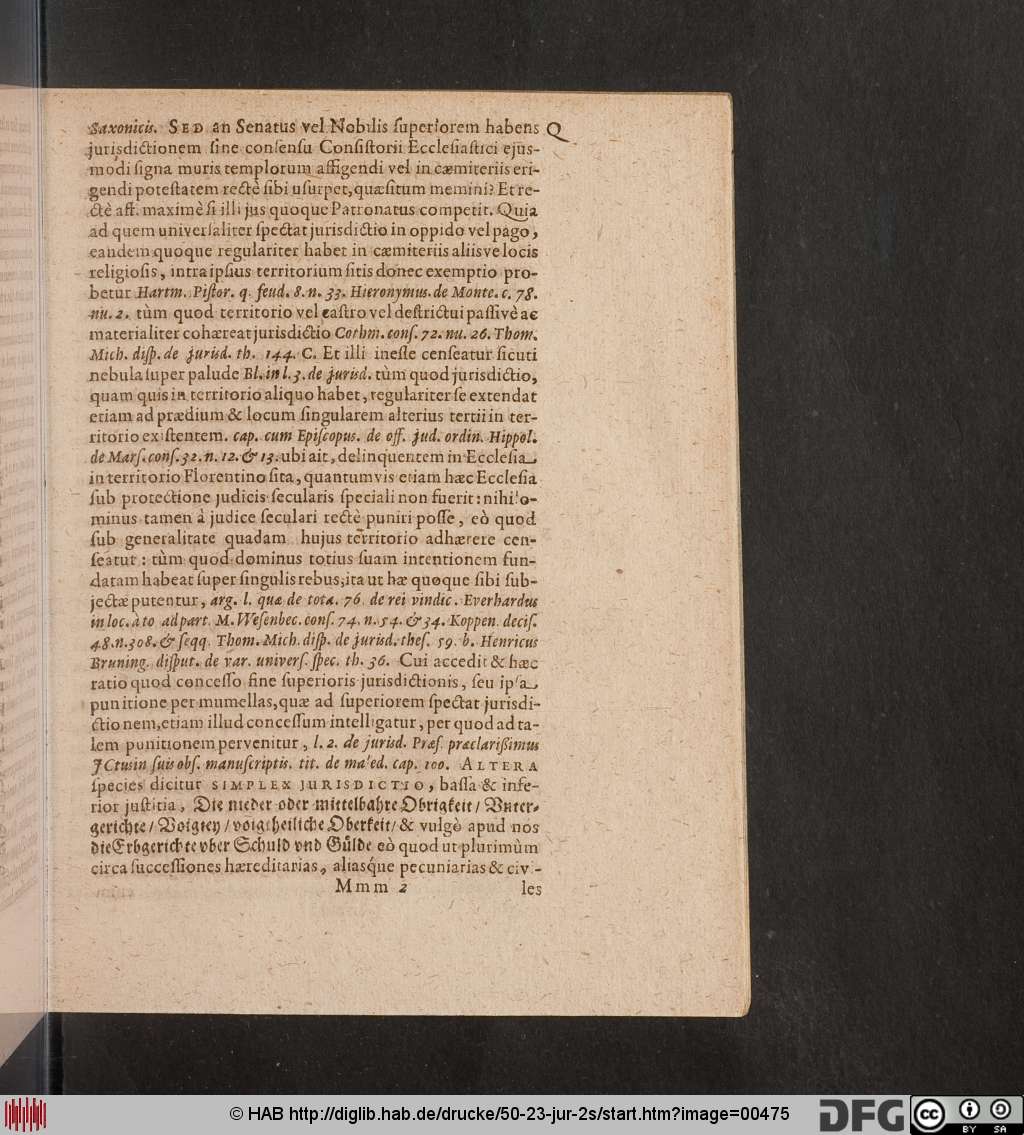 Saxonicis. SED an Senatus vel Nobilis ſuperiorem habens Q
jurisdictionem ſine conſenſu Conſiſtorii Eccleſiaſtici ejus-
modi ſigna muris templorum affigendi vel in cæmiteriis eri-
gendi poteſtatem rectè ſibi uſurpet, quæſitum memini? Et re-
ctè aff. maximè ſi illi jus quoque Patronatus competit. Quia
ad quem univerſaliter ſpectat jurisdictio in oppido vel pago,
eandem quoque regulariter habet in cæmiteriis aliisve locis
religioſis, intra ipſius territorium ſitis donec exemptio pro-
betur Hartm. Piſtor. q. feud. 8. n. 33. Hieronymus. de Monte. c. 78.
nu. 2. tùm quod territorio vel caſtro vel deſtrictui paſſivè ac
materialiter cohæreat jurisdictio Cothm. conſ. 72. nu. 26. Thom.
Mich. diſp. de jurisd. th. 144. C. Et illi ineſſe cenſeatur ſicuti
nebula ſuper palude Bl. in l. 3. de jurisd. tùm quod jurisdictio,
quam quis in territorio aliquo habet, regulariter ſe extendat
etiam ad prædium & locum ſingularem alterius tertii in ter-
ritorio exiſtentem. cap. cum Epiſcopus. de off. jud. ordin. Hippol.
de Marſ. conſ. 32. n. 12. & 13. ubi ait, delinquentem in Eccleſia
in territorio Florentino ſita, quantumvis etiam hæc Eccleſia
ſub protectione judicis ſecularis ſpeciali non fuerit: nihilo-
minus tamen à judice ſeculari rectè puniri poſſe, eò quod
ſub generalitate quadam hujus territorio adhærere cen-
ſeatur: tùm quod dominus totius ſuam intentionem fun-
datam habeat ſuper ſingulis rebus; ita ut hæ quoque ſibi ſub-
jectæ putentur, arg. l. quæ de tota. 76. de rei vindic. Everhardus
in loc. à to ad part. M. Weſenbec. conſ. 74. n. 54. & 34. Koppen. deciſ.
48. n. 308. & ſeqq. Thom. Mich. diſp. de jurisd. theſ. 59. b. Henricus
Bruning. diſput. de var. univerſ. ſpec. th. 36. Cui accedit & hæc
ratio quod conceſſo fine ſuperioris jurisdictionis, ſeu ipſa
punitione per mumellas, quæ ad ſuperiorem ſpectat jurisdi-
ctionem, etiam illud conceſſum intelligatur, per quod ad ta-
lem punitionem pervenitur, l. 2. de jurisd. Præſ. præclarißimus
JCtus in ſuis obſ. manuſcriptis. tit. de maled. cap. 100. ALTERA
ſpecies dicitur SIMPLEX JURISDICTIO, baſſa & infe-
rior juſtitia, Die nieder oder mittelbahre Obrigkeit / Vnter-
gerichte / Voigtey / voigtheiliche Oberkeit / & vulgò apud nos
die Erbgerichte vber Schuld vnd Gülde eò quod ut plurimùm
circa ſucceſſiones hæreditarias, aliasq́ue pecuniarias & civi-
Mmm 2 les
© HAB http://diglib.hab.de/drucke/50-23-jur-2s/start.htm?image=00475 DFG cc BY SA